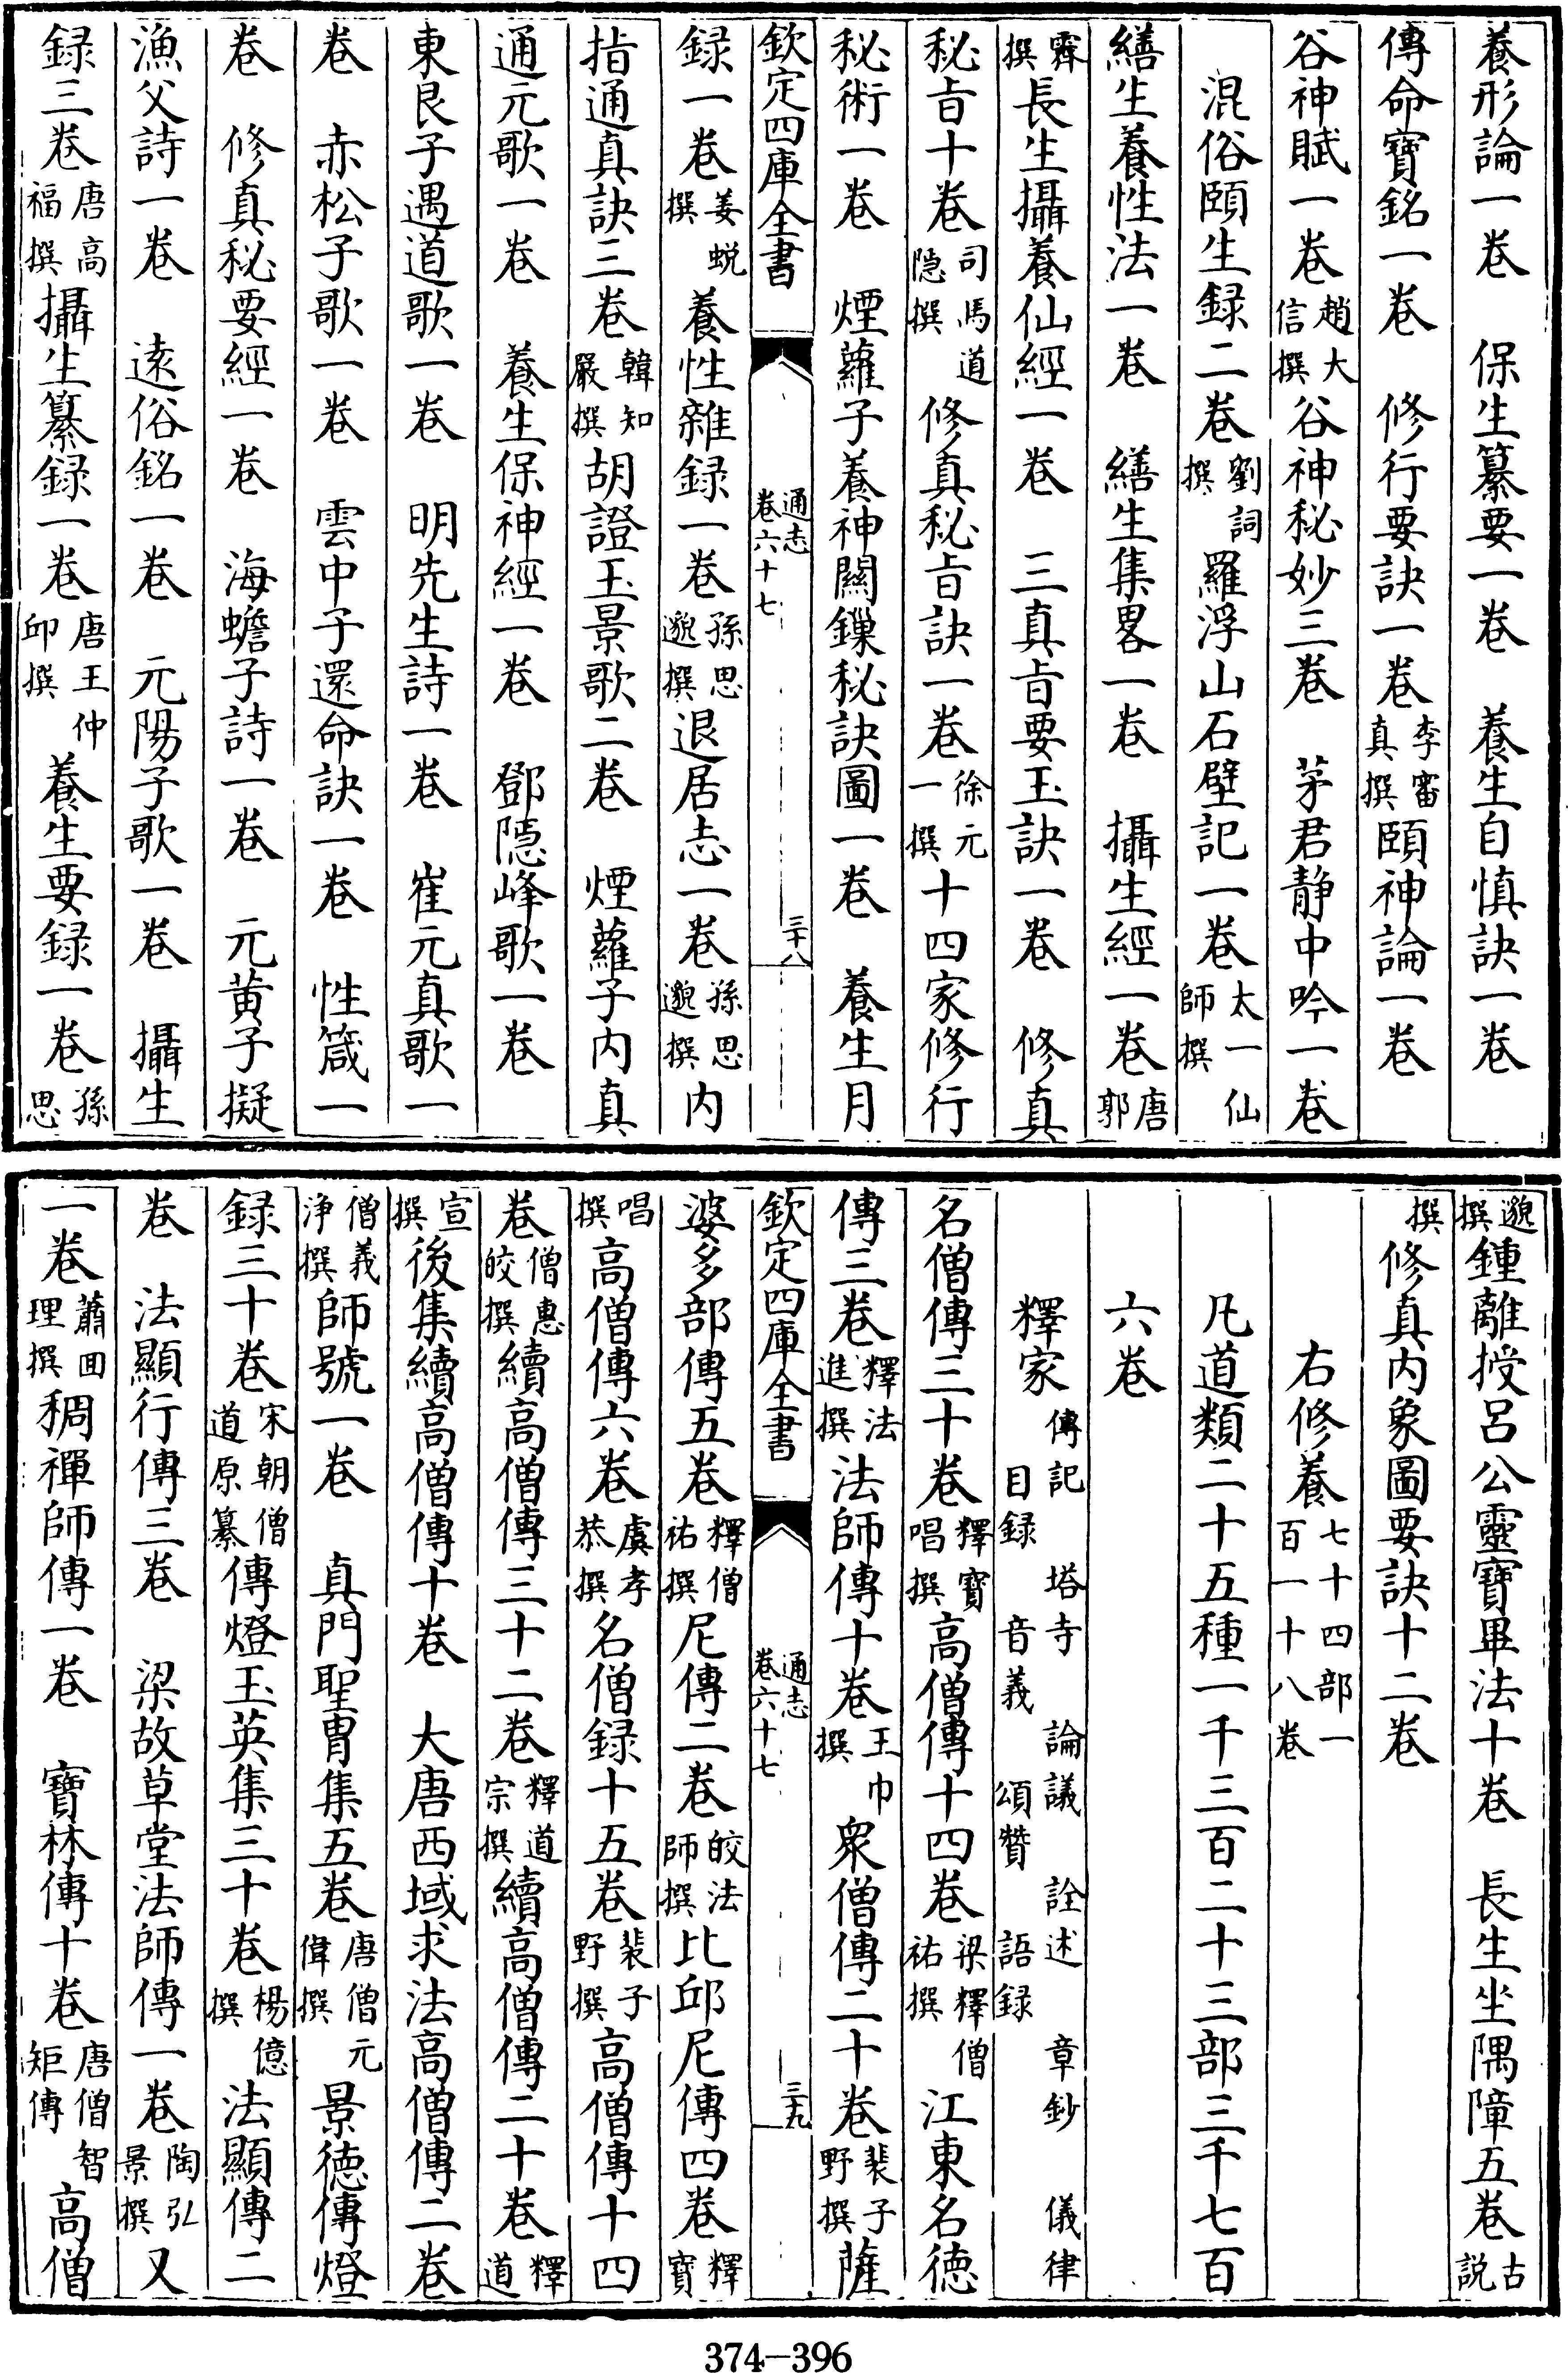 養形論一卷　保生纂要一卷　養生自慎訣一卷
傳命寶銘一卷　修行要訣一卷李審真撰頤神論一卷
谷神賦一卷趙大信撰谷神秘妙三卷　茅君静中吟一卷
混俗頤生録二卷劉詞撰羅浮山石壁記一卷太一仙師撰
繕生養性法一卷　繕生集畧一卷　攝生經一卷唐郭
霽撰長生攝養仙經一卷　三真㫖要玉訣一卷　修真
秘㫖十卷司馬道隠撰修真秘㫖訣一卷徐元一撰十四家修行
秘術一卷　煙蘿子養神關鏁秘訣圖一卷　養生月
欽定四庫全書　通志卷六十七　三十八
録一卷姜蜕撰養性雜録一卷孫思邈撰退居志一卷孫思邈撰内
指通真訣三卷韓知嚴撰胡證玉景歌二卷　煙蘿子内真
通元歌一卷　養生保神經一卷　鄧隠峰歌一卷
東艮子遇道歌一卷　明先生詩一卷　崔元真歌一
卷　赤松子歌一卷　雲中子還命訣一卷　性箴一
卷　修真秘要經一卷　海蟾子詩一卷　元黄子擬
漁父詩一卷　逺俗銘一卷　元陽子歌一卷　攝生
録三卷唐高福撰攝生纂録一卷唐王仲邱撰養生要録一卷孫思
邈撰鍾離授呂公靈寶畢法十卷　長生坐隅障五卷古説
撰修真内象圖要訣十二卷
右修養七十四部一百一十八卷
凡道類二十五種一千三百二十三部三千七百
六卷
釋家傳記　塔寺　論議　詮述　章鈔　儀律　目録　音義　頌贊　語録
名僧傳三十卷釋寶唱撰高僧傳十四卷梁釋僧祐撰江東名徳
傳三卷釋法進撰法師傳十卷王巾撰衆僧傳二十卷裴子野撰薩
欽定四庫全書　通志卷六十七　三十九
婆多部傳五卷釋僧祐撰尼傳二卷皎法師撰比邱尼傳四卷釋寶
唱撰高僧傳六卷虞孝恭撰名僧録十五卷裴子野撰高僧傳十四
卷僧惠皎撰續高僧傳三十二卷釋道宗撰續高僧傳二十卷釋道
宣撰後集續高僧傳十卷　大唐西域求法高僧傳二卷
僧義浄撰師號一卷　真門聖胄集五卷唐僧元偉撰景徳傳燈
録三十卷宋朝僧道原纂傳燈玉英集三十卷楊億撰法顯傳二
卷　法顯行傳三卷　梁故草堂法師傳一卷陶弘景撰又
一卷蕭囬理撰稠禪師傳一卷　寶林傳十卷唐僧智矩傳高僧
374—396